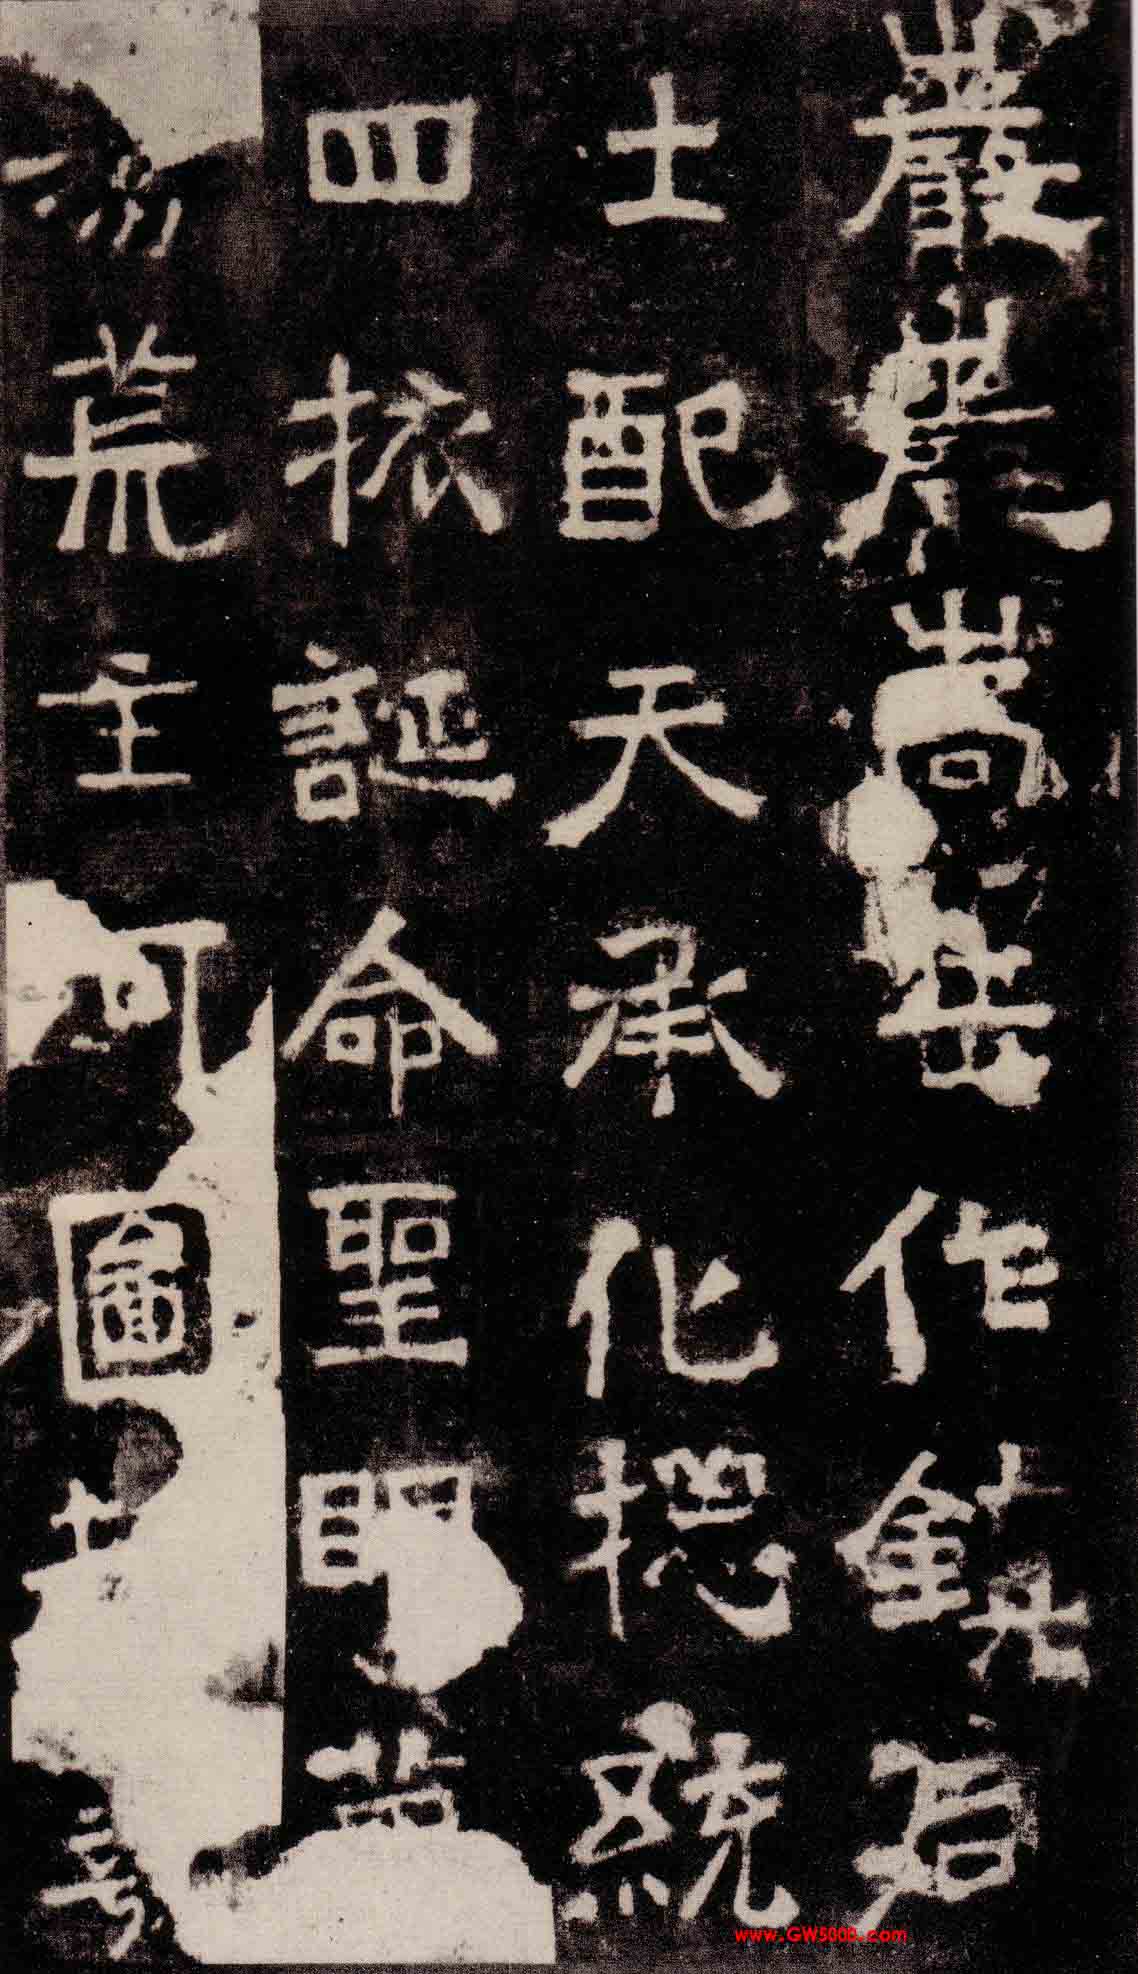 巖巖嵩岳作鎮后
土配天承化揔統
四抧誕命聖
荒主河圖
www.GW5008.com